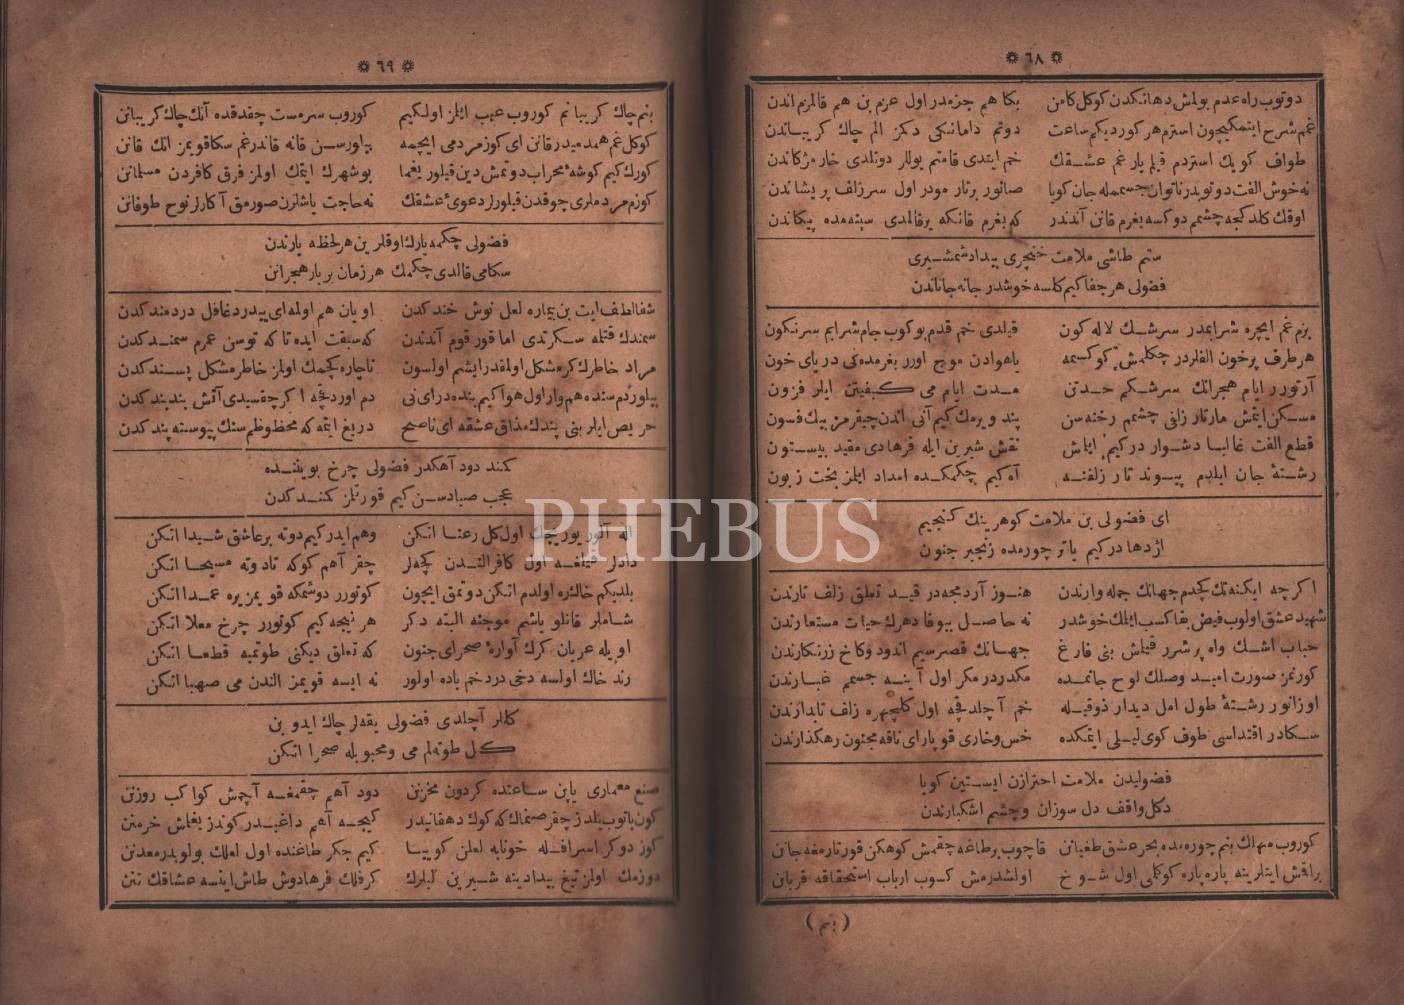 ٦٨
دوتوب راه عدم بولمش دهانكدن كوكل كامن بكا هم جزمدر اول عزم بن هم قالمزم اندن
غمم شرح ايتمكيچون استرم هر كورديكم ساعت دوتم دامانكى دكمز الم چاك كريباندن
طواف كويك استردم قيلم يار غم عشقك خم ايتدى قامتم يوللر دوتلدى خار مژكاندن
نه خوش الفت دوتوبدر ناتوان جسممله جان كويا صانور برتار مودر اول سر زلف پريشاندن
اوقك كلدكجه چشمم دوكسه بغرم قانن آندندر كه بغرم قانكه يرقالمدى سينه‌مده پيكاندن
ستم طاشى ملامت خنجرى بيداد شمشيرى
فضولى هر جفا كيم كلسه خوشدر جانه جاناندن
بزم غم ايچره شرابمدر سرشك لاله كون قيلدى خم قدم بوكوب جام شرابم سرنكون
هر طرف پرخون الفلردر چكلمش كوكسمه يا هوادن موج اورر بغرمده‌كى درياى خون
آرتورر ايام هجرانك سرشكم حدتن مدت ايام مى كيفيتن ايلر فزون
مسكن ايتمش مارتلر زلفى چشمم رخنه‌سن پند ويرمك كيم آنى اندن چيقرمز بيك فسون
قطع الفت غالبا دشوار دركيم ايلمش نقش شيرين ايله فرهادى مقيد بيستون
رشتهٔ جان ايلدم پيوند تار زلفنه آه كيم چكمكده امداد ايلمز بخت زبون
اى فضولى بن ملامت كوهرينك كنجيم
اژدهادركيم ياتر چورمده زنجير جنون
اكرچه ايكنه‌تك كچدم جهانك جمله وارندن هنوز آردمجه‌در قيد تعلق زلف تارندن
شهيد عشق اولوب فيض بقا كسب ايلمك خوشدر نه حاصل بيوفا دهرك حيات مستعارندن
حباب اشك واه پرشرر قيلمش بنى فارغ جهانك قصر سيم اندود وكاخ زرنكارندن
كورنمز صورت اميد وصلك لوح جانمده مكدردر مكر اول آينه جسمم غبارندن
اوزانور رشتهٔ طول امل ديدار ذوقيله خم آچلدقچه اول كلچهره زلف تابدارندن
سكادر اقتداسى طوف كوى ليلى ايتمكده خس وخارى قوپار اى ناقه مجنون رهكذارندن
فضوليدن ملامت احترازن ايستين كويا
دكل واقف دل سوزان وچشم اشكبارندن
كوروب مهلك بنم چوره‌مده بحر عشق طغيانن قاچوب برطاغه چقمش كوهكن قورتارمغه جانن
براقمش ايتلرينه پاره پاره كوكلمى اول شوخ اولشدرمش كسوب ارباب استحقاقه قربانن
(بنم)
٦٩
بنم چاك كريبانم كوروب عيب ايلمز اولكيم كوروب سرمست چقدقده آنك چاك كريبانن
كوكل غم همدميدر قانن اى كوز مردمى ايچمه بيلورسن قانه قاندر غم سكا قويمز انك قانن
كورك كيم كوشهٔ محراب دوتمش دين قيلور يغما بوشهرك ايتمك اولمز فرق كافردن مسلمانن
كوزم مردملرى چوقدن قيلورلر دعوئ عشقك نه حاجت ياشلرن صورمق آكارلر نوح طوفانن
فضولى چكمه يارك اوقلرين هر لحظه ياردن
سكامى قالدى چكمك هر زمان بر بار هجرانن
شفا لطف ايت بن بيماره لعل نوش خندكدن اويان هم اولمه اى بيدرد غافل دردمندكدن
سمندك قتلمه سكرتدى اما قورقوم آندندن كه سبقت ايده تا كه توسن عمرم سمندكدن
مراد خاطرك كر مشكل اولمقدر ايشم اولسون ناچاره كچمك اولمز خاطر مشكل پسندكدن
بيلوردم سنده هم وار اول هوا كيم بنده در اى نى دم اوردقچه اكر چقسيدى آتش بند بندكدن
حريص ايلر بنى پندك مذاق عشقه اى ناصح دريغ ايتمه كه محظوظم سنك پيوسته پندكدن
كمند دود آهكدر فضولى چرخ بويننده
عجب صيادسن كيم قورتلمز كمندكدن
اله آلور يوريچك اول كل رعنا اتكن وهم ايدركيم دوته بر عاشق شيدا اتكن
دادلر قيلمغه اول كافر النـدن كچه‌لر چقر آهم كوكه تا دوته مسيحا اتكن
بلديكم خالزه اولدم اتكن دوتمق ايچون كوتورر دوشمكه قويمز يره عمدا اتكن
شاملر قانلو ياشم موجنه البته دكر هر نيجه كيم كوتورر چرخ معلا اتكن
اويله عريان كرك آوارهٔ صحراى جنون كه تعلق ديكنى طوتميه قطعا اتكن
رند خاك اولسه دخى دردخم باده اولور نه ايسه قويمز الندن مى صهبا اتكن
كللر آچلدى فضولى يقه‌لر چاك ايدوبن
كل طوته‌لم مى ومحبوبله صحرا اتكن
صنع معمارى ياپن ساعتده كردون مخزنن دود آهم چقمغه آچمش كواكب روزنن
كون باتوب يلدز چقر صنمانك كوك دهقانيدر كيجه آهم داغيدر كوندز يغلمش خرمنن
كوز دوكر اسرافله خونابه لعلن كوييا كيم جكر طاغنده اول لعلك بولوبدر معدنن
دوزمك اولمز تيغ بيدادينه شيرين لبلرك كر فلك فرهادوش طاش ايتسه عشاقك تنن
PHEBUS